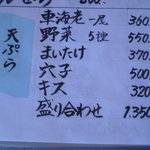 天ぷら
車海老 一尾 360
野菜 5種 550
まいたけ 370
穴子 500
キス 320
盛り合わせ 1,350